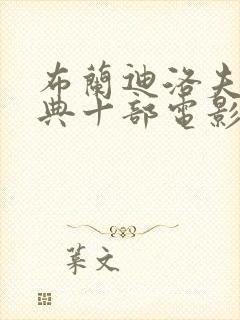 布蘭迪洛夫
典十部電影
葉文